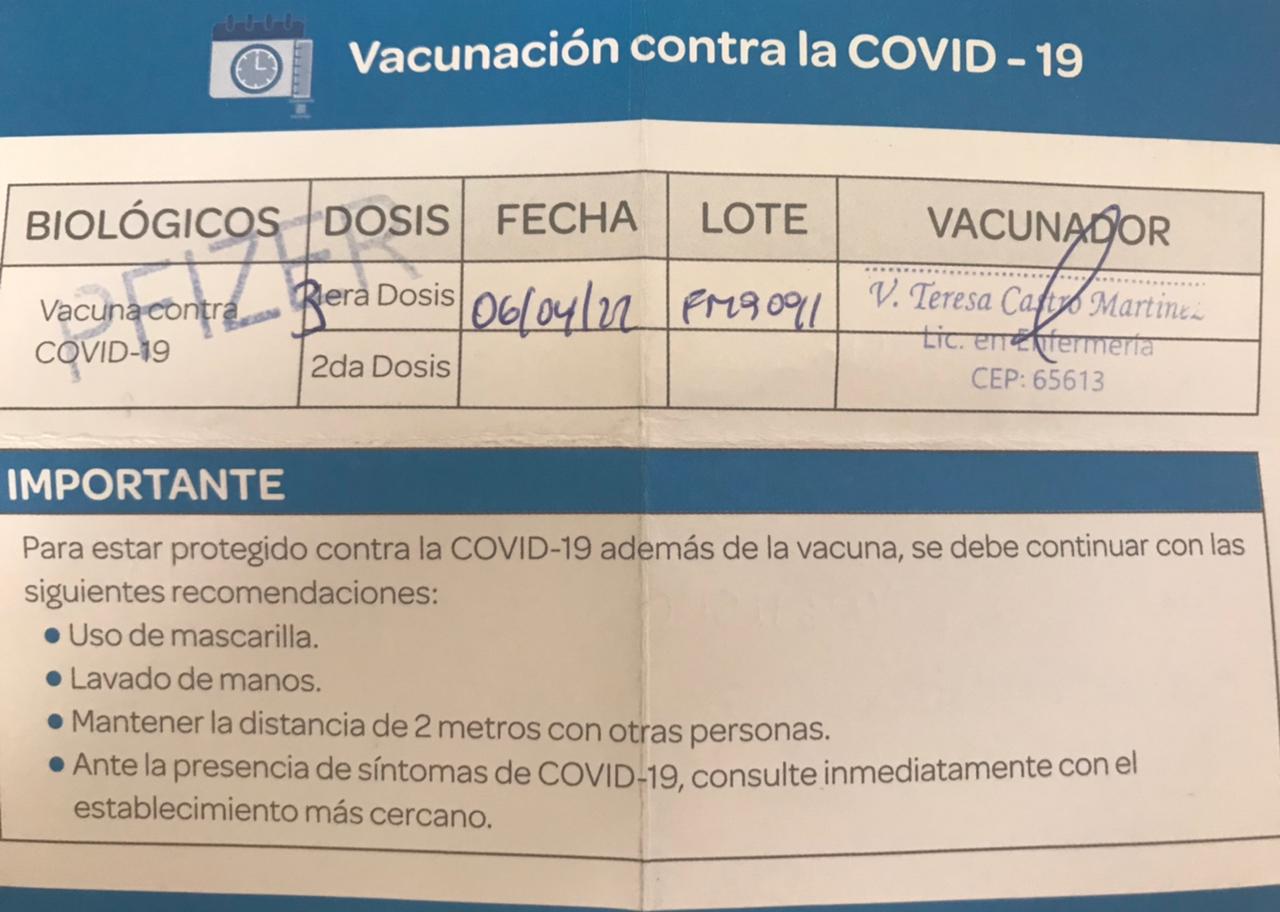 Vacunación contra la COVID - 19
BIOLÓGICOS DOSIS FECHA LOTE VACUNADOR
PFIZER
Vacuna contra COVID-19
3 1era Dosis 06/04/22 FM9091
2da Dosis
V. Teresa Castro Martinez
Lic. en Enfermería
CEP: 65613
IMPORTANTE
Para estar protegido contra la COVID-19 además de la vacuna, se debe continuar con las
siguientes recomendaciones:
• Uso de mascarilla.
• Lavado de manos.
• Mantener la distancia de 2 metros con otras personas.
• Ante la presencia de síntomas de COVID-19, consulte inmediatamente con el
establecimiento más cercano.